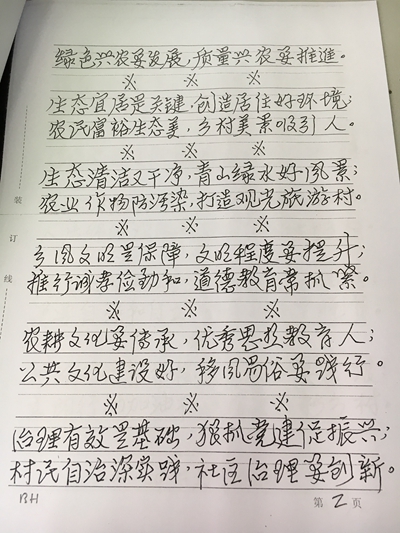 绿色兴农要发展，质量兴农要推进。
※ ※ ※
生态宜居是关键，创造居住好环境；
农民富裕生态美，乡村美景吸引人。
※ ※ ※
生态清洁又干净，青山绿水好风景；
农业作物防污染，打造观光旅游村。
※ ※ ※
乡风文明是保障，文明程度要提升；
推行诚孝俭勤和，道德教育常抓紧。
※ ※ ※
农耕文化要传承，优秀思想教育人；
公共文化建设好，移风易俗要践行。
※ ※ ※
治理有效是基础，狠抓党建促振兴；
村民自治深实践，社区治理要创新。
BH 第2页
装
订
线